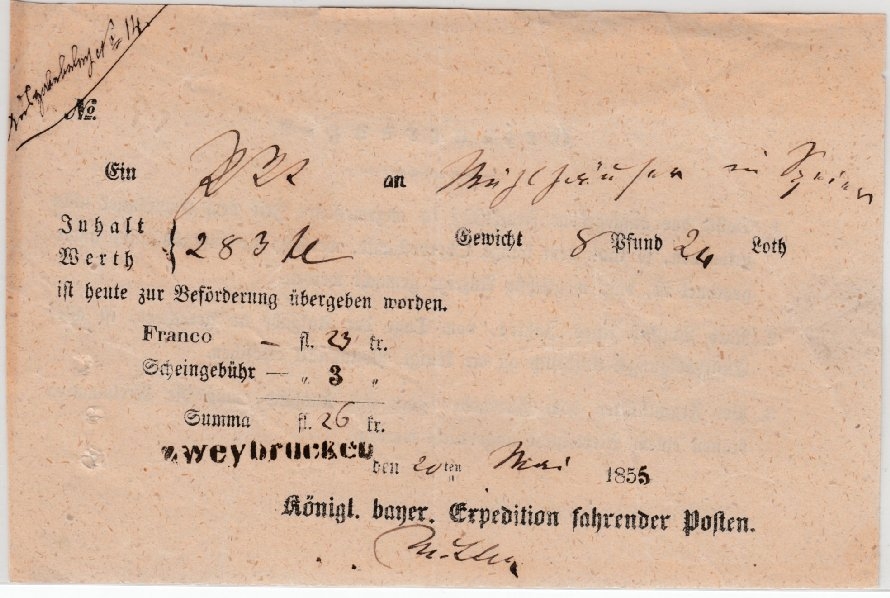 No.
Ein an Mühlhäuser in Speier
Inhalt
Werth } 283 Gewicht 8 Pfund 24 Loth
ist heute zur Beförderung übergeben worden.
Franco — fl. 23 kr.
Scheingebühr — „ 3 „
Summa fl. 26 kr.
Zweybrücken den 20ten Mai 1855
Königl. bayer. Expedition fahrender Posten.